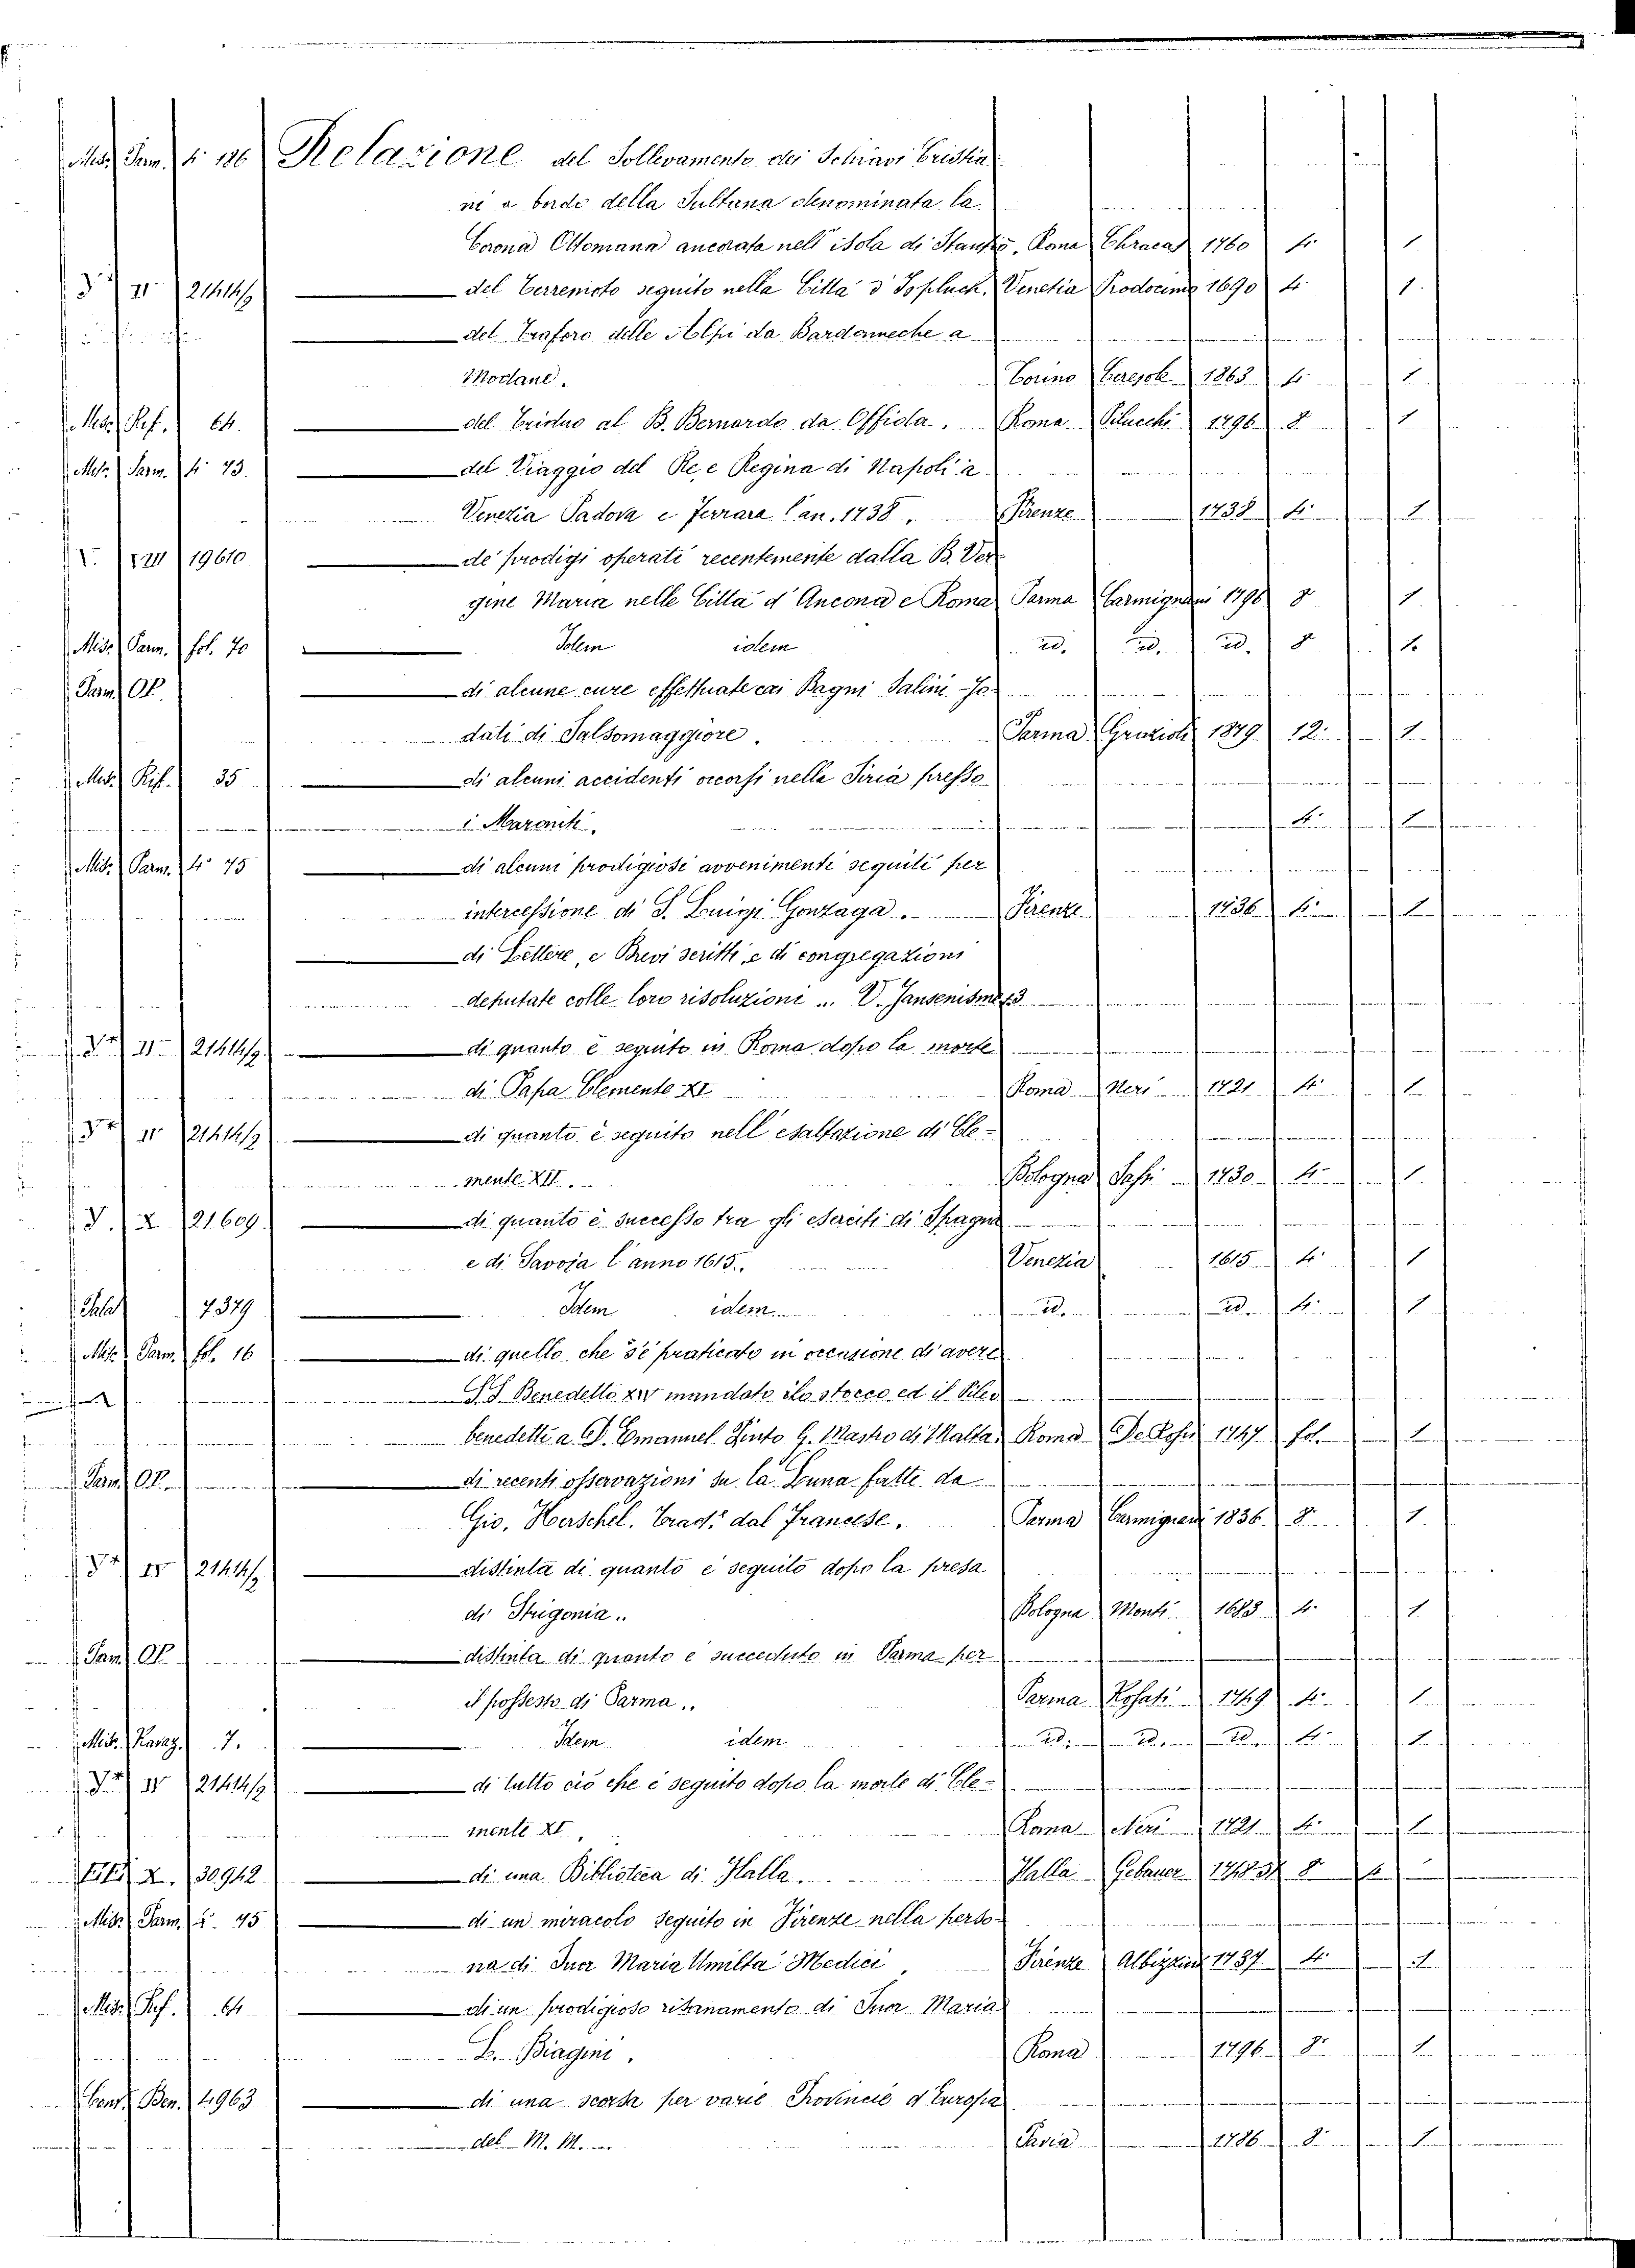 Misc. Parm. 4° 186 Relazione del Sollevamento dei Schiavi Cristia
ni a bordo della Sultana denominata la
Corona Ottomana ancorata nell' isola di Stanchiò. Roma Chracas 1760 4° 1
11 21414/9 del Terremoto seguito nella Città d Topluch. Venetia Prodocimo 1690 4° 1.
del Traforo delle Alpi da Bardonneche a
Modane. Torino Ceresole 1863 4° 1
Misc. Rif. 64. del Triduo al B. Bernardo da Offida. Roma Pilucchi 1796 8° 1
Misc. Parm. 4° 73. del Viaggio del Re, e Regina di Napoli a
Venezia Padova e Ferrara l'an. 1738. Firenze 1738 4° 1
V. VIII 19610 de' prodigi operati recentemente dalla B. Ver
gine Maria nelle Città d' Ancona e Roma Parma Carmignani 1796 8° 1
Misc. Parm. fol. 70 Idem idem id. id. id. 8° 1.
Parm. OP. di alcune cure effettuate coi Bagni Salini-Jo
dati di Salsomaggiore. Parma Grazioli 1879 12° 1
Misc. Rif. 35 di alcuni accidenti occorsi nella Siria presso
i Maroniti. 4° 1
Misc. Parm. 4° 75 di alcuni prodigiosi avvenimenti seguiti per
intercessione di S. Luigi Gonzaga. Firenze 1736 4° 1
di Lettere, e Brevi scritti e di congregazioni
deputate colle loro risoluzioni ... V. Jansenismo
11 21414/9 di quanto è seguito in Roma dopo la morte
di Papa Clemente XI Roma Neri 1721 4° 1
11 21414/9 di quanto è seguito nell' esaltazione di Cle-
mente XII. Bologna Sassi 1730 4° 1
V. X 21.609 di quanto è successo tra gli eserciti di Spagna
e di Savoja l'anno 1615. Venezia 1615 4° 1
Palat 7379 Idem idem id. id. 4° 1
Misc. Parm. fol. 16 di quello che si è praticato in occasione di avere
S.S. Benedetto XIV mandato lo stocco ed il Pileo
benedetti a D. Emanuel Pinto G. Mastro di Malta. Roma De Rossi 1747 fol. 1
Parm. OP. di recenti osservazioni su la Luna fatte da
Gio. Herschel. Trad.e dal Francese. Parma Carmignani 1836 8° 1
21414/9 distinta di quanto è seguito dopo la presa
di Strigonia. Bologna Monti 1683 4° 1
Parm. OP. distinta di quanto è succeduto in Parma per
il possesso di Parma. Parma Rosati 1749 4° 1
Misc. Ravag. 7. Idem idem id. id. id. 4° 1
21414/9 di tutto ciò che è seguito dopo la morte di Cle-
mente XI. Roma Neri 1721 4° 1
X. 30942 di una Biblioteca di Halla. Halla Gebauer 8°
Misc. Parm. 4° 75 di un miracolo seguito in Firenze nella perso-
na di Suor Maria Umiltà Medici. Firenze Albizzini 1737 4° 1
Misc. Rif. 64 di un prodigioso risanamento di Suor Maria
L. Biagini. Roma 1796 8° 1
Cent. Ben. 4963 di una scorsa per varie Provincie d'Europa
del M. M. Pavia 1786 8° 1